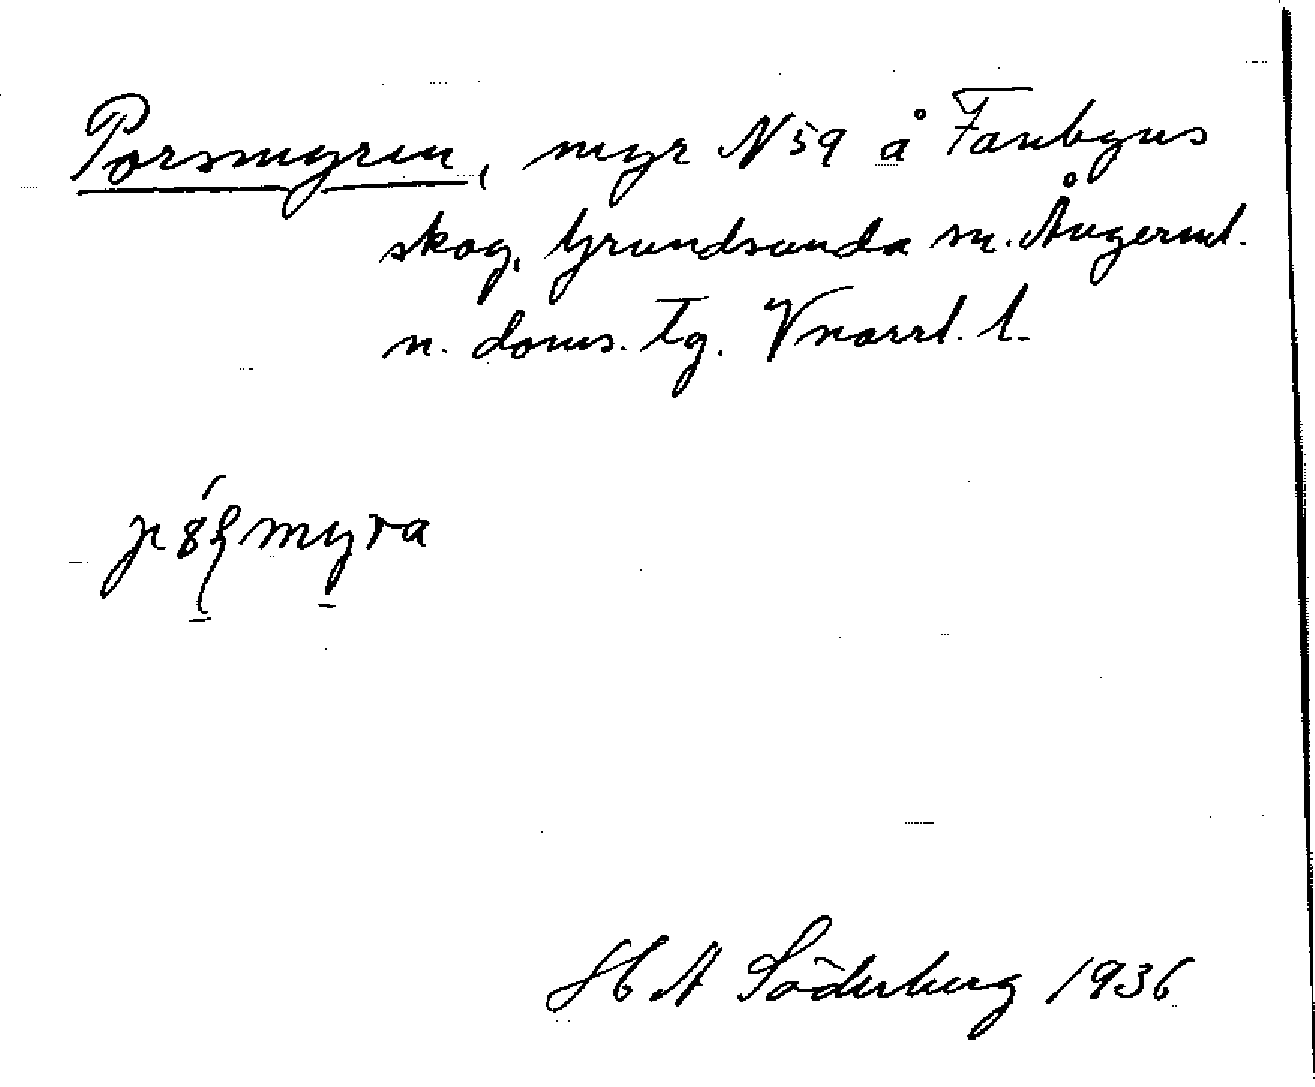 Porsmyren, myr N 59 å Fanbyns
skog, Grundsunda sn. Ångerml.
n. doms. tg. Vnorrl. l.
myra
H A Söderberg 1936